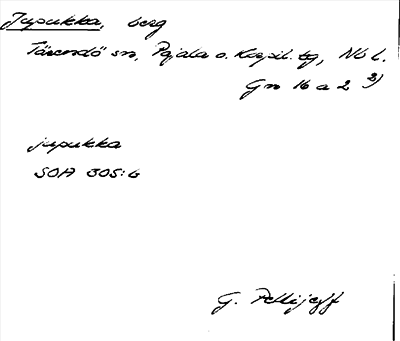 Jupukka, berg
Tärendö sn, Pajala o. Korpil. tg, Nb l.
Gn 16 a 2 2)
jupukka
SOA 305:6
G. Pellijeff